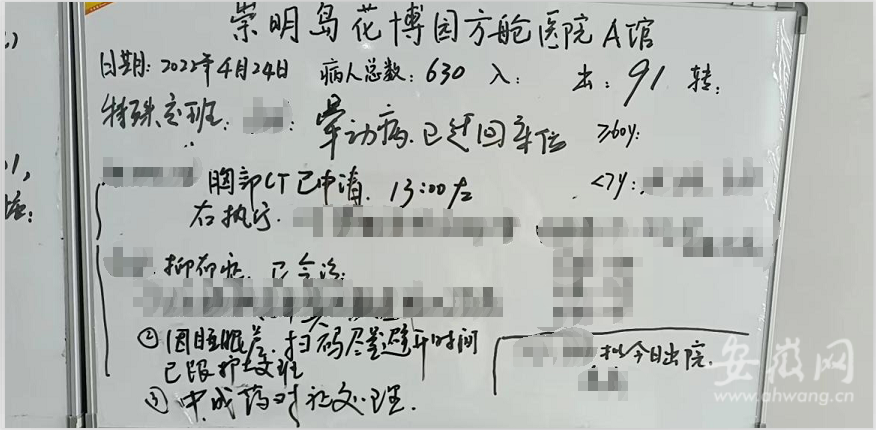 崇明岛花博园方舱医院A馆
日期：2022年4月24日 病人总数：630 入： 出：91 转：
特殊交班： 晕动病.已迁回车位 ≥60y：
胸部CT已申请.13:00左 <7y：
右执行.
抑郁症.已会诊
②因睡眠差.扫码尽量避开时间
已跟护士交班
拟今日出院.
③中成药对症处理.
安徽网
www.ahwang.cn